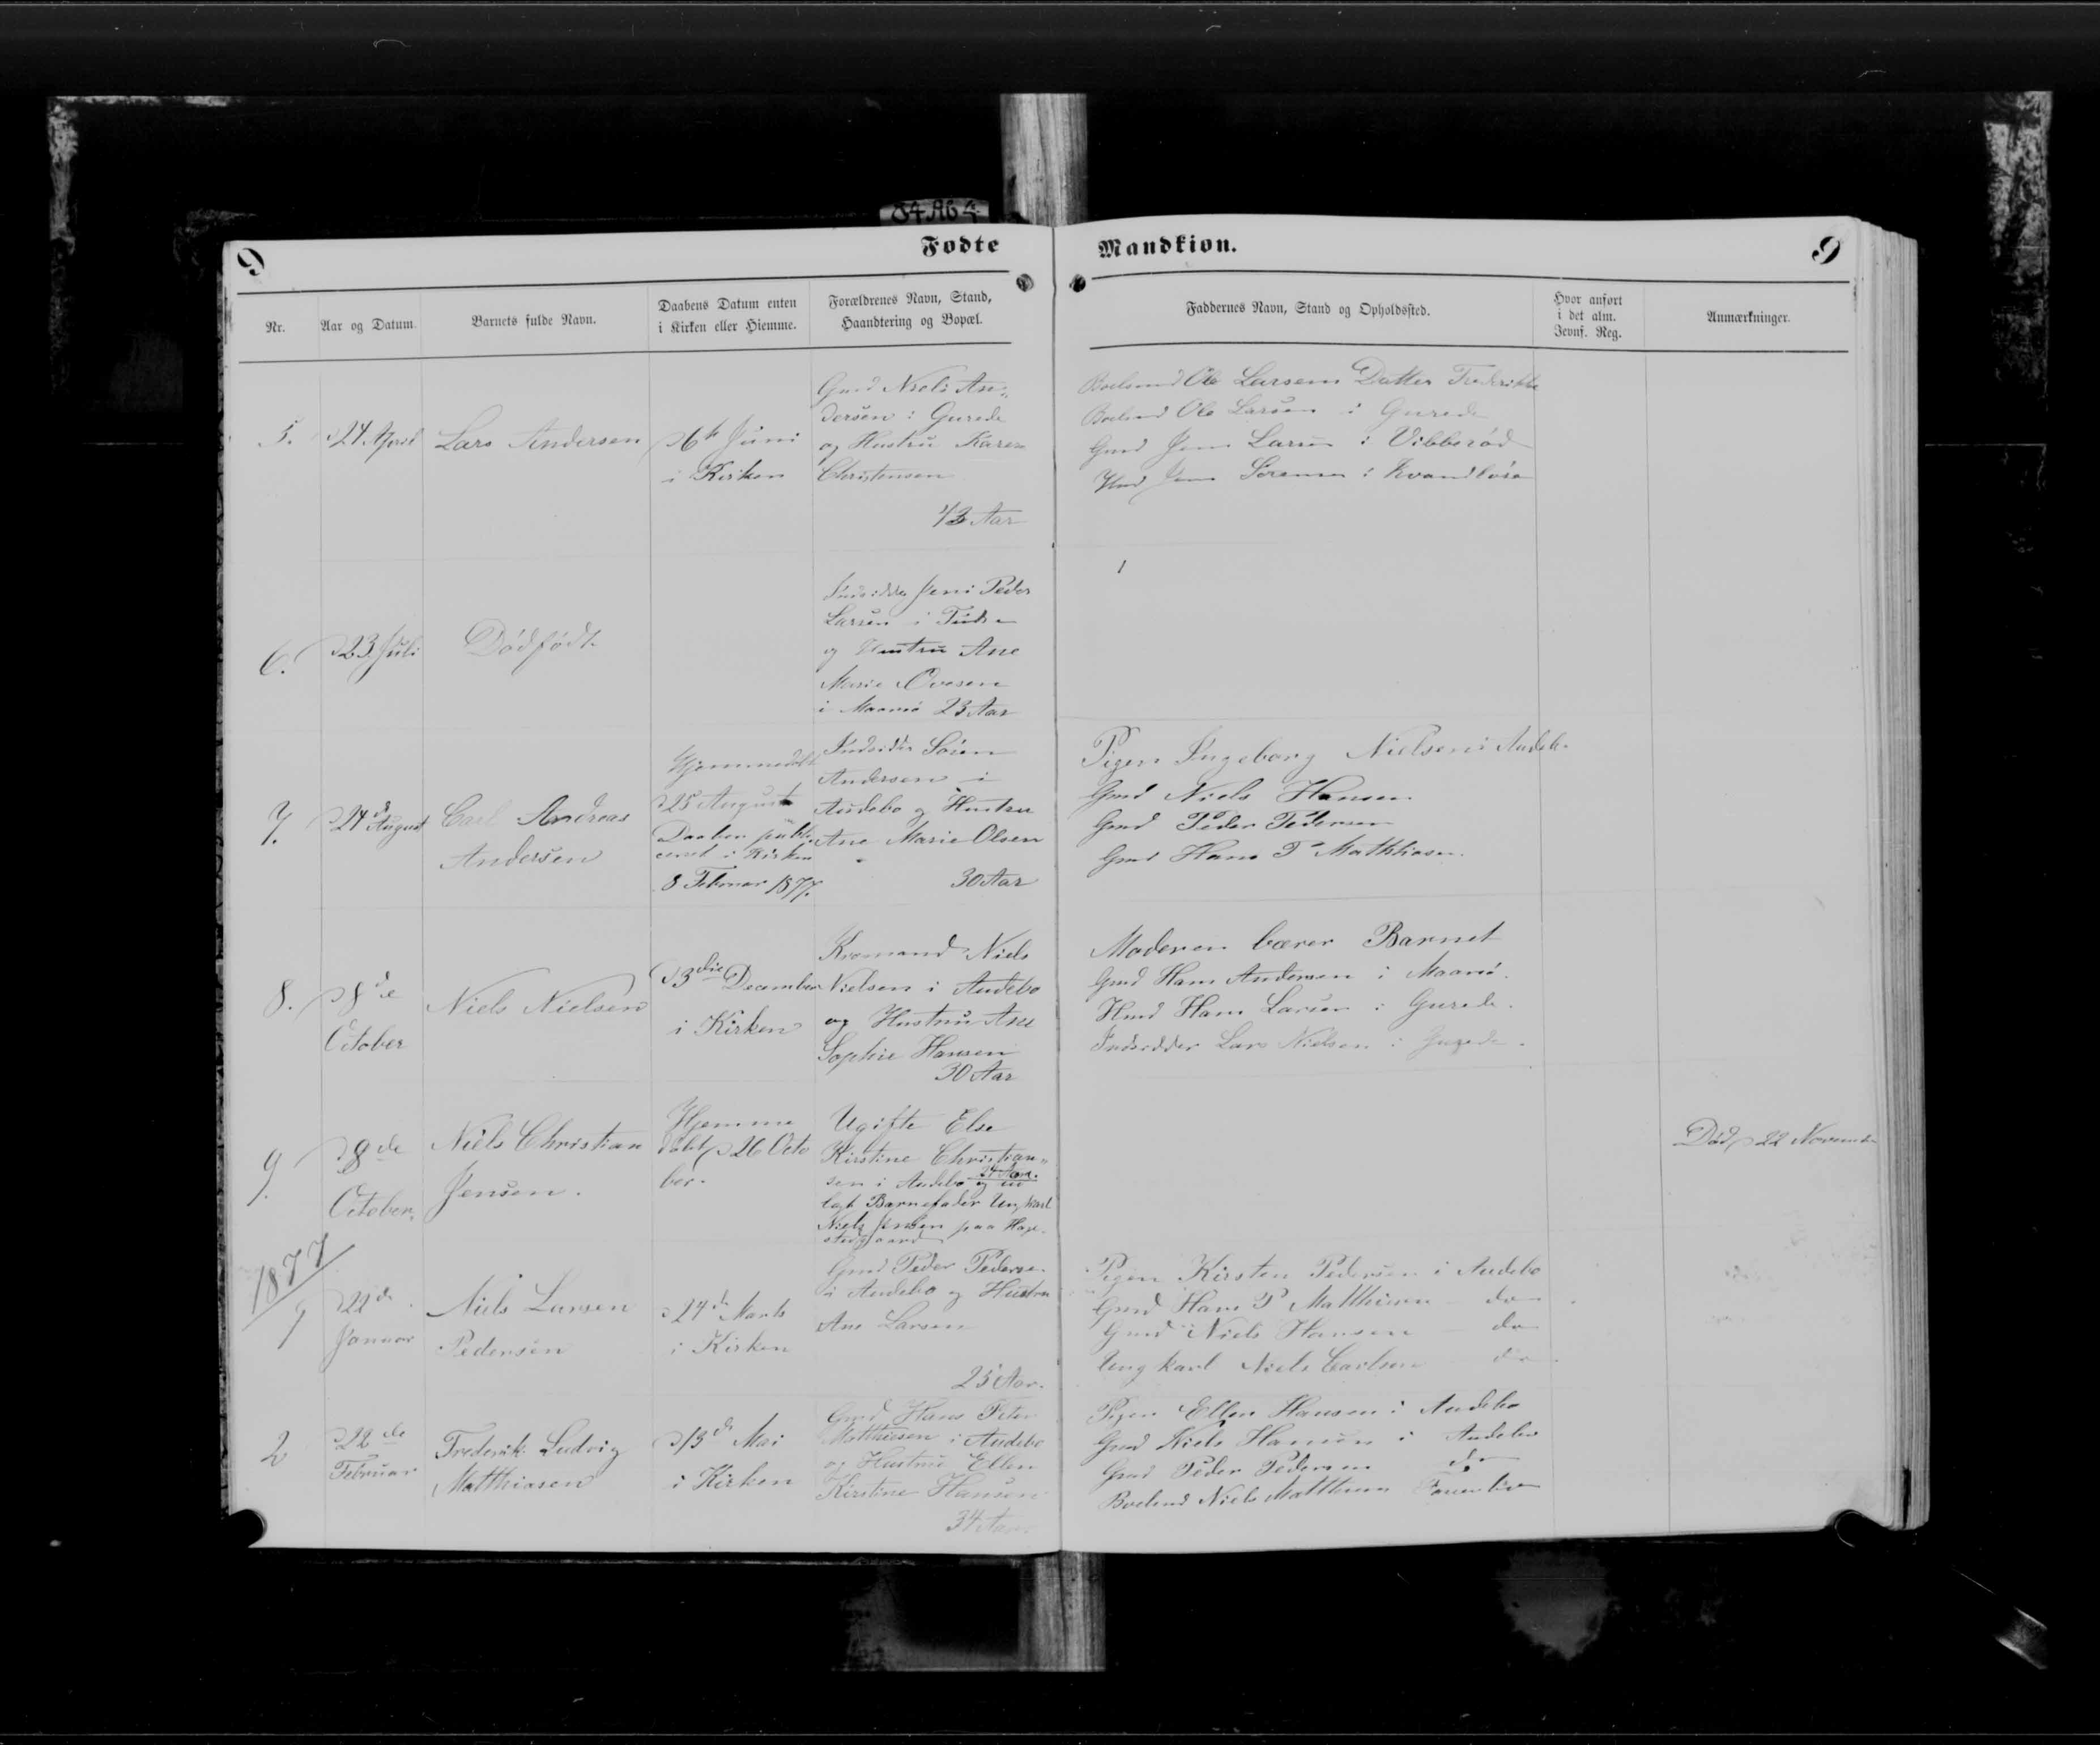 54 Ab 4
9
Fødte
Mandkiøn.
9
Nr.
Aar og Datum.
Barnets fulde Navn.
Daabens Datum enten
i Kirken eller Hiemme.
Forældrenes Navn, Stand,
Haandtering og Bopæl.
Faddernes Navn, Stand og Opholdssted.
Hvor anført
i det alm.
Jevnf. Reg.
Anmærkninger.
5.
24 April
Lars Andersen
6te Juni
i Kirken
Gmd Niels An-
dersen i Gurede
og Hustru Karen
Christensen
43 Aar
Boelsmd Ole Larsens Datter Frederikke
Boelsmd Ole Larsen i Gurede
Gmd Jens Larsen i Vibberød
Hmd Jens Sørensen i Kvandløse
6.
23 Juli
Dødfødt
Indsidder Jens Peder
Larsen i Tudse
og Hustru Ane
Marie Ovesen
i Maarsø 23 Aar
7.
24d August
Carl Andreas
Andersen
Hjemmedøbt
25 August
Daaben publi-
ceret i Kirken
8 Februar 1877.
Indsidder Søren
Andersen i
Audebo og Hustru
Ane Marie Olsen
30 Aar
Pigen Ingeborg Nielsen i Audebo
Gmd Niels Hansen
Gmd Peder Pedersen
Gmd Hans P Mathiasen.
8.
8de
October
Niels Nielsen
3die December
i Kirken
Kromand Niels
Nielsen i Audebo
og Hustru Ane
Sophie Hansen
30 Aar
Moderen bærer Barnet
Gmd Hans Andersen i Maarsø.
Hmd Hans Larsen i Gurede.
Indsidder Lars Nielsen i Gurede.
9.
8de
October.
Niels Christian
Jensen.
Hjemme
døbt 26 Octo
ber.
Ugifte Else
Kirstine Christian-
24 Aar.
sen i Audebo og ud
lagt Barnefader Ungkarl
Niels Jensen paa Hage-
stedgaard
Død 22 November
1877
1
22de
Januar
Niels Larsen
Pedersen
24de Marts
i Kirken
Gmd Peder Pedersen
i Audebo og Hustru
Ane Larsen
25 Aar.
Pigen Kirsten Pedersen i Audebo
Gmd Hans P Matthiesen do
Gmd Niels Hansen do
Ungkarl Niels Carlsen do
2
22de
Februar
Frederik Ludvig
Matthiasen
13de Mai
i Kirken
Gmd Hans Peter
Matthiesen i Audebo
og Hustru Ellen
Kirstine Hansen
34 Aar
Pigen Ellen Hansen i Audebo
Gmd Niels Hansen i Audebo
Gmd Peder Pedersen do
Boelsmd Niels Matthiesen